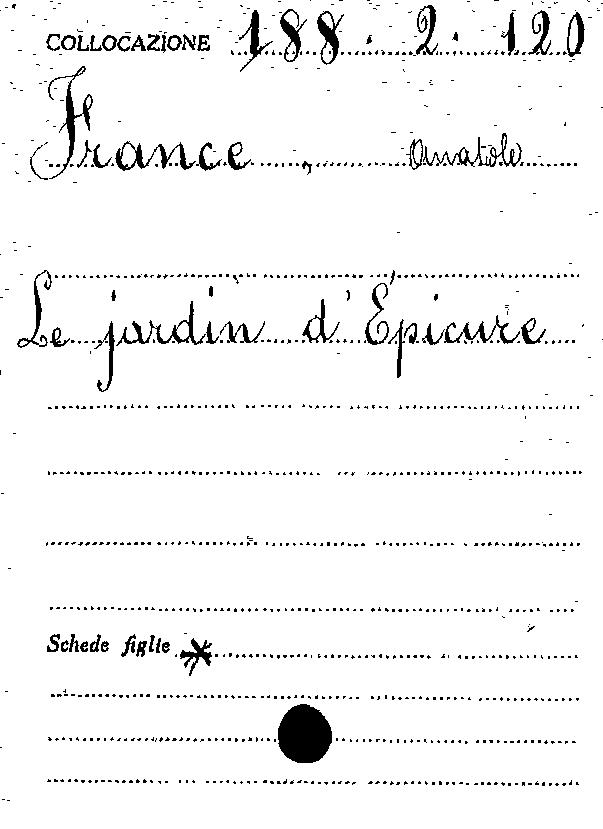 COLLOCAZIONE 188.2.120
France, Anatole
Le jardin d'Épicure
Schede figlie *